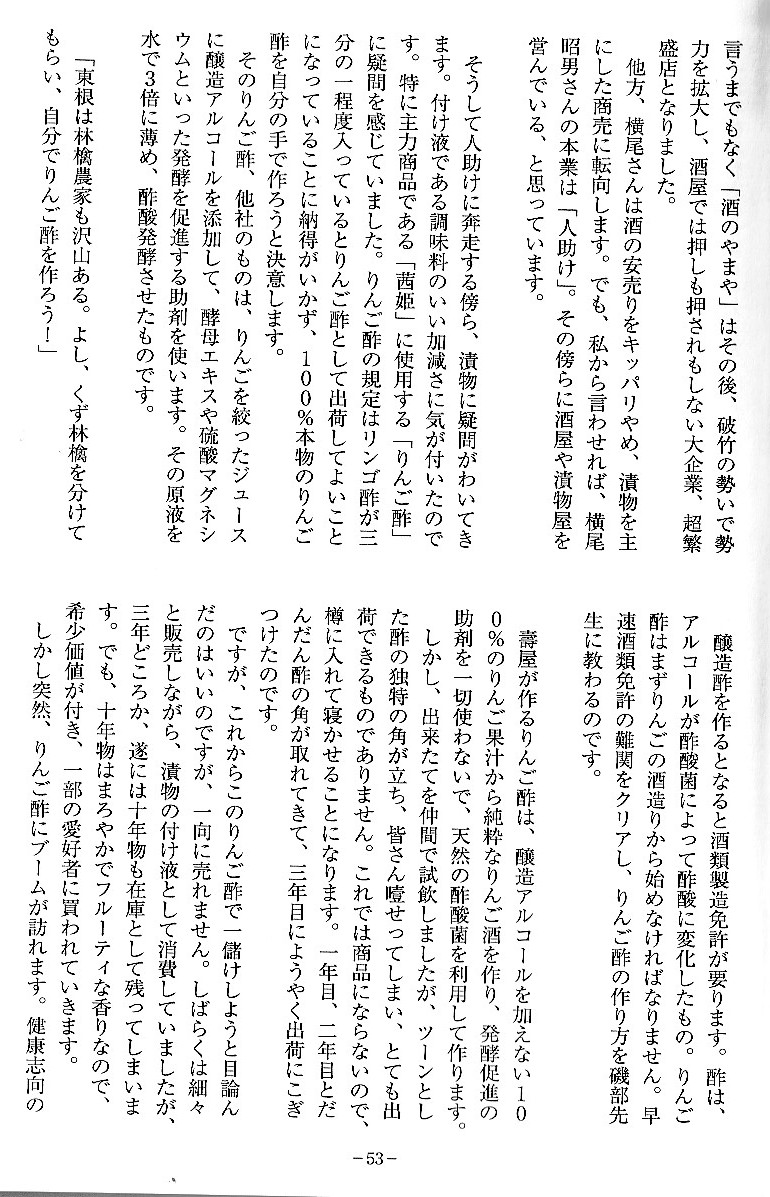 言うまでもなく「酒のやまや」はその後、破竹の勢いで勢
力を拡大し、酒屋では押しも押されもしない大企業、超繁
盛店となりました。
他方、横尾さんは酒の安売りをキッパリやめ、漬物を主
にした商売に転向します。でも、私から言わせれば、横尾
昭男さんの本業は「人助け」。その傍らに酒屋や漬物屋を
営んでいる、と思っています。
そうして人助けに奔走する傍ら、漬物に疑問がわいてき
ます。付け液である調味料のいい加減さに気が付いたので
す。特に主力商品である「茜姫」に使用する「りんご酢」
に疑問を感じていました。りんご酢の規定はリンゴ酢が三
分の一程度入っているとりんご酢として出荷してよいこと
になっていることに納得がいかず、100%本物のりんご
酢を自分の手で作ろうと決意します。
そのりんご酢、他社のものは、りんごを絞ったジュース
に醸造アルコールを添加して、酵母エキスや硫酸マグネシ
ウムといった発酵を促進する助剤を使います。その原液を
水で3倍に薄め、酢酸発酵させたものです。
「東根は林檎農家も沢山ある。よし、くず林檎を分けて
もらい、自分でりんご酢を作ろう!」
醸造酢を作るとなると酒類製造免許が要ります。酢は、
アルコールが酢酸菌によって酢酸に変化したもの。りんご
酢はまずりんごの酒造りから始めなければなりません。早
速酒類免許の難関をクリアし、りんご酢の作り方を磯部先
生に教わるのです。
壽屋が作るりんご酢は、醸造アルコールを加えない10
0%のりんご果汁から純粋なりんご酒を作り、発酵促進の
助剤を一切使わないで、天然の酢酸菌を利用して作ります。
しかし、出来たてを仲間で試飲しましたが、ツーンとし
た酢の独特の角が立ち、皆さん噎せってしまい、とても出
荷できるものでありません。これでは商品にならないので、
樽に入れて寝かせることになります。一年目、二年目とだ
んだん酢の角が取れてきて、三年目にようやく出荷にこぎ
つけたのです。
ですが、これからこのりんご酢で一儲けしようと目論ん
だのはいいのですが、一向に売れません。しばらくは細々
と販売しながら、漬物の付け液として消費していましたが、
三年どころか、遂には十年物も在庫として残ってしまいま
す。でも、十年物はまろやかでフルーティな香りなので、
希少価値が付き、一部の愛好者に買われていきます。
しかし突然、りんご酢にブームが訪れます。健康志向の
-53-